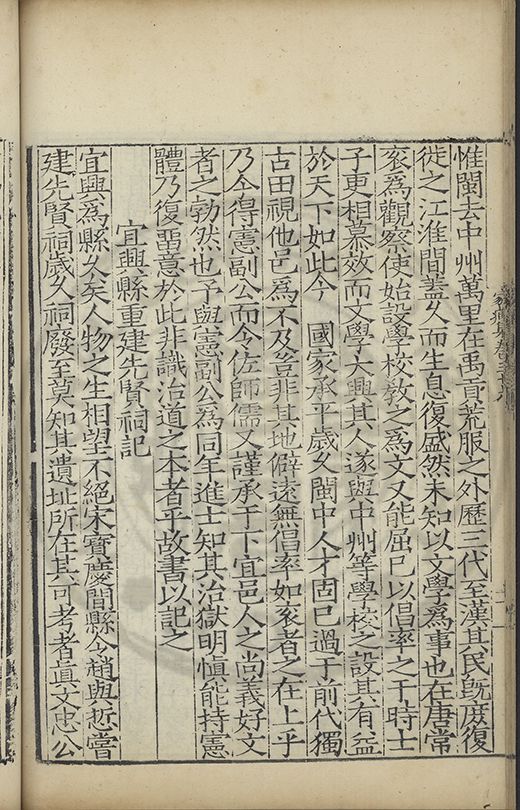 惟閩去中州萬里在禹貢荒服之外歷三代至漢其民旣度復
徙之江淮間蓋久而生息復盛然未知以文學爲事也在唐常
衮爲觀察使始設學校教之爲文又能屈已以倡率之于時士
子更相慕效而文學大興其人遂與中州等學校之設其有益
於天下如此今　國家承平歲久閩中人才固已過于前代獨
古田視他邑爲不及豈非其地僻遠無倡率如衮者之在上乎
乃今得憲副公而令佐師儒又謹承于下宜邑人之尚義好文
者之勃然也予與憲副公爲同年進士知其治獄明慎能持憲
體乃復畱意於此非識治道之本者乎故書以記之
宜興縣重建先賢祠記
宜興爲縣久矣人物之生相望不絕宋寳慶間縣令趙與悊嘗
建先賢祠歲久祠廢至莫知其遺址所在其可考者眞文忠公